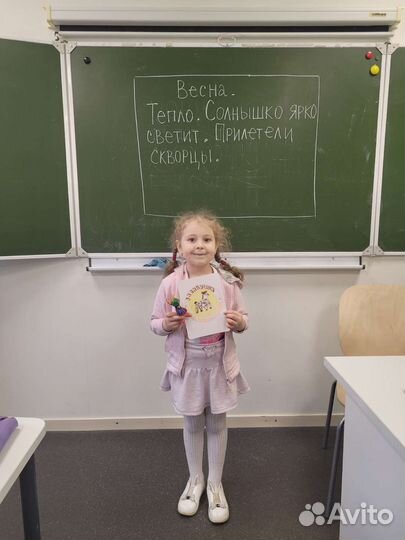 Весна.
Тепло. Солнышко ярко
светит. Прилетели
скворцы.
Avito